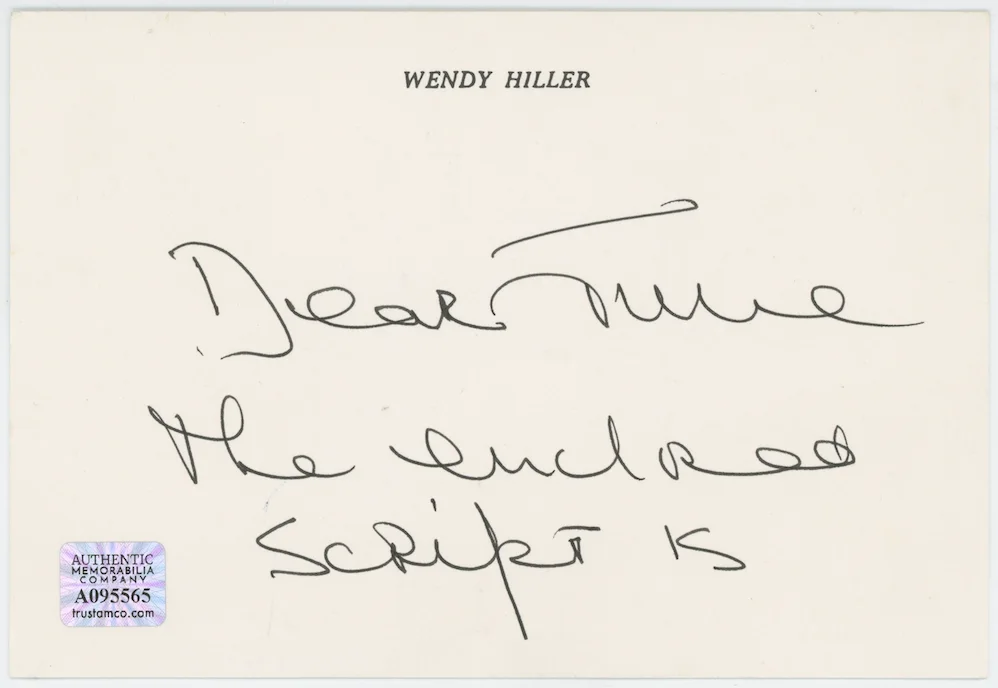 WENDY HILLER
Dear June
The enclosed
script is
AUTHENTIC
MEMORABILIA
COMPANY
A095565
trustamco.com